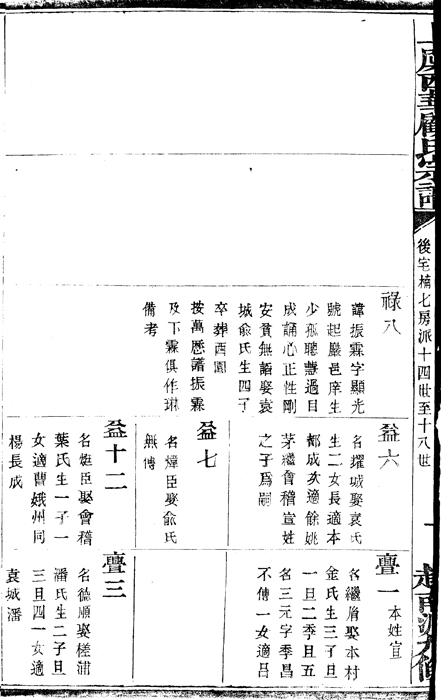 上虞西華顧氏宗譜
後宅楠七房派十四世至十八世
祿八
諱振霖字顯光
號起巖邑庠生
少孤聰慧過目
成誦心正性剛
安貧無語娶袁
城俞氏生四子
卒葬西園
按萬曆譜振霖
及下霖俱作琳
備考
益六
名燿城娶袁氏
生二女長適本
都成次適餘姚
茅繼會稽宣姓
之子爲嗣
益七
名煒臣娶俞氏
無傳
益十二
名烶臣娶會稽
葉氏生一子一
女適曹娥州同
楊長成
亹一本姓宣
名繼盾娶本村
金氏生三子旦
一旦二季旦五
名三元字季昌
不傳一女適呂
亹三
名德順娶槎浦
潘氏生二子旦
三旦四一女適
袁城潘